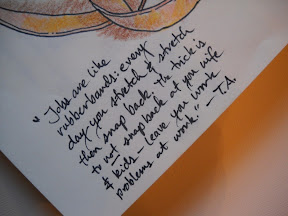 "Jobs are like
rubberbands: every
day you stretch & stretch
then snap back. The trick is
to not snapback at you wife
& kids – leave you work
problems at work." – T.S.